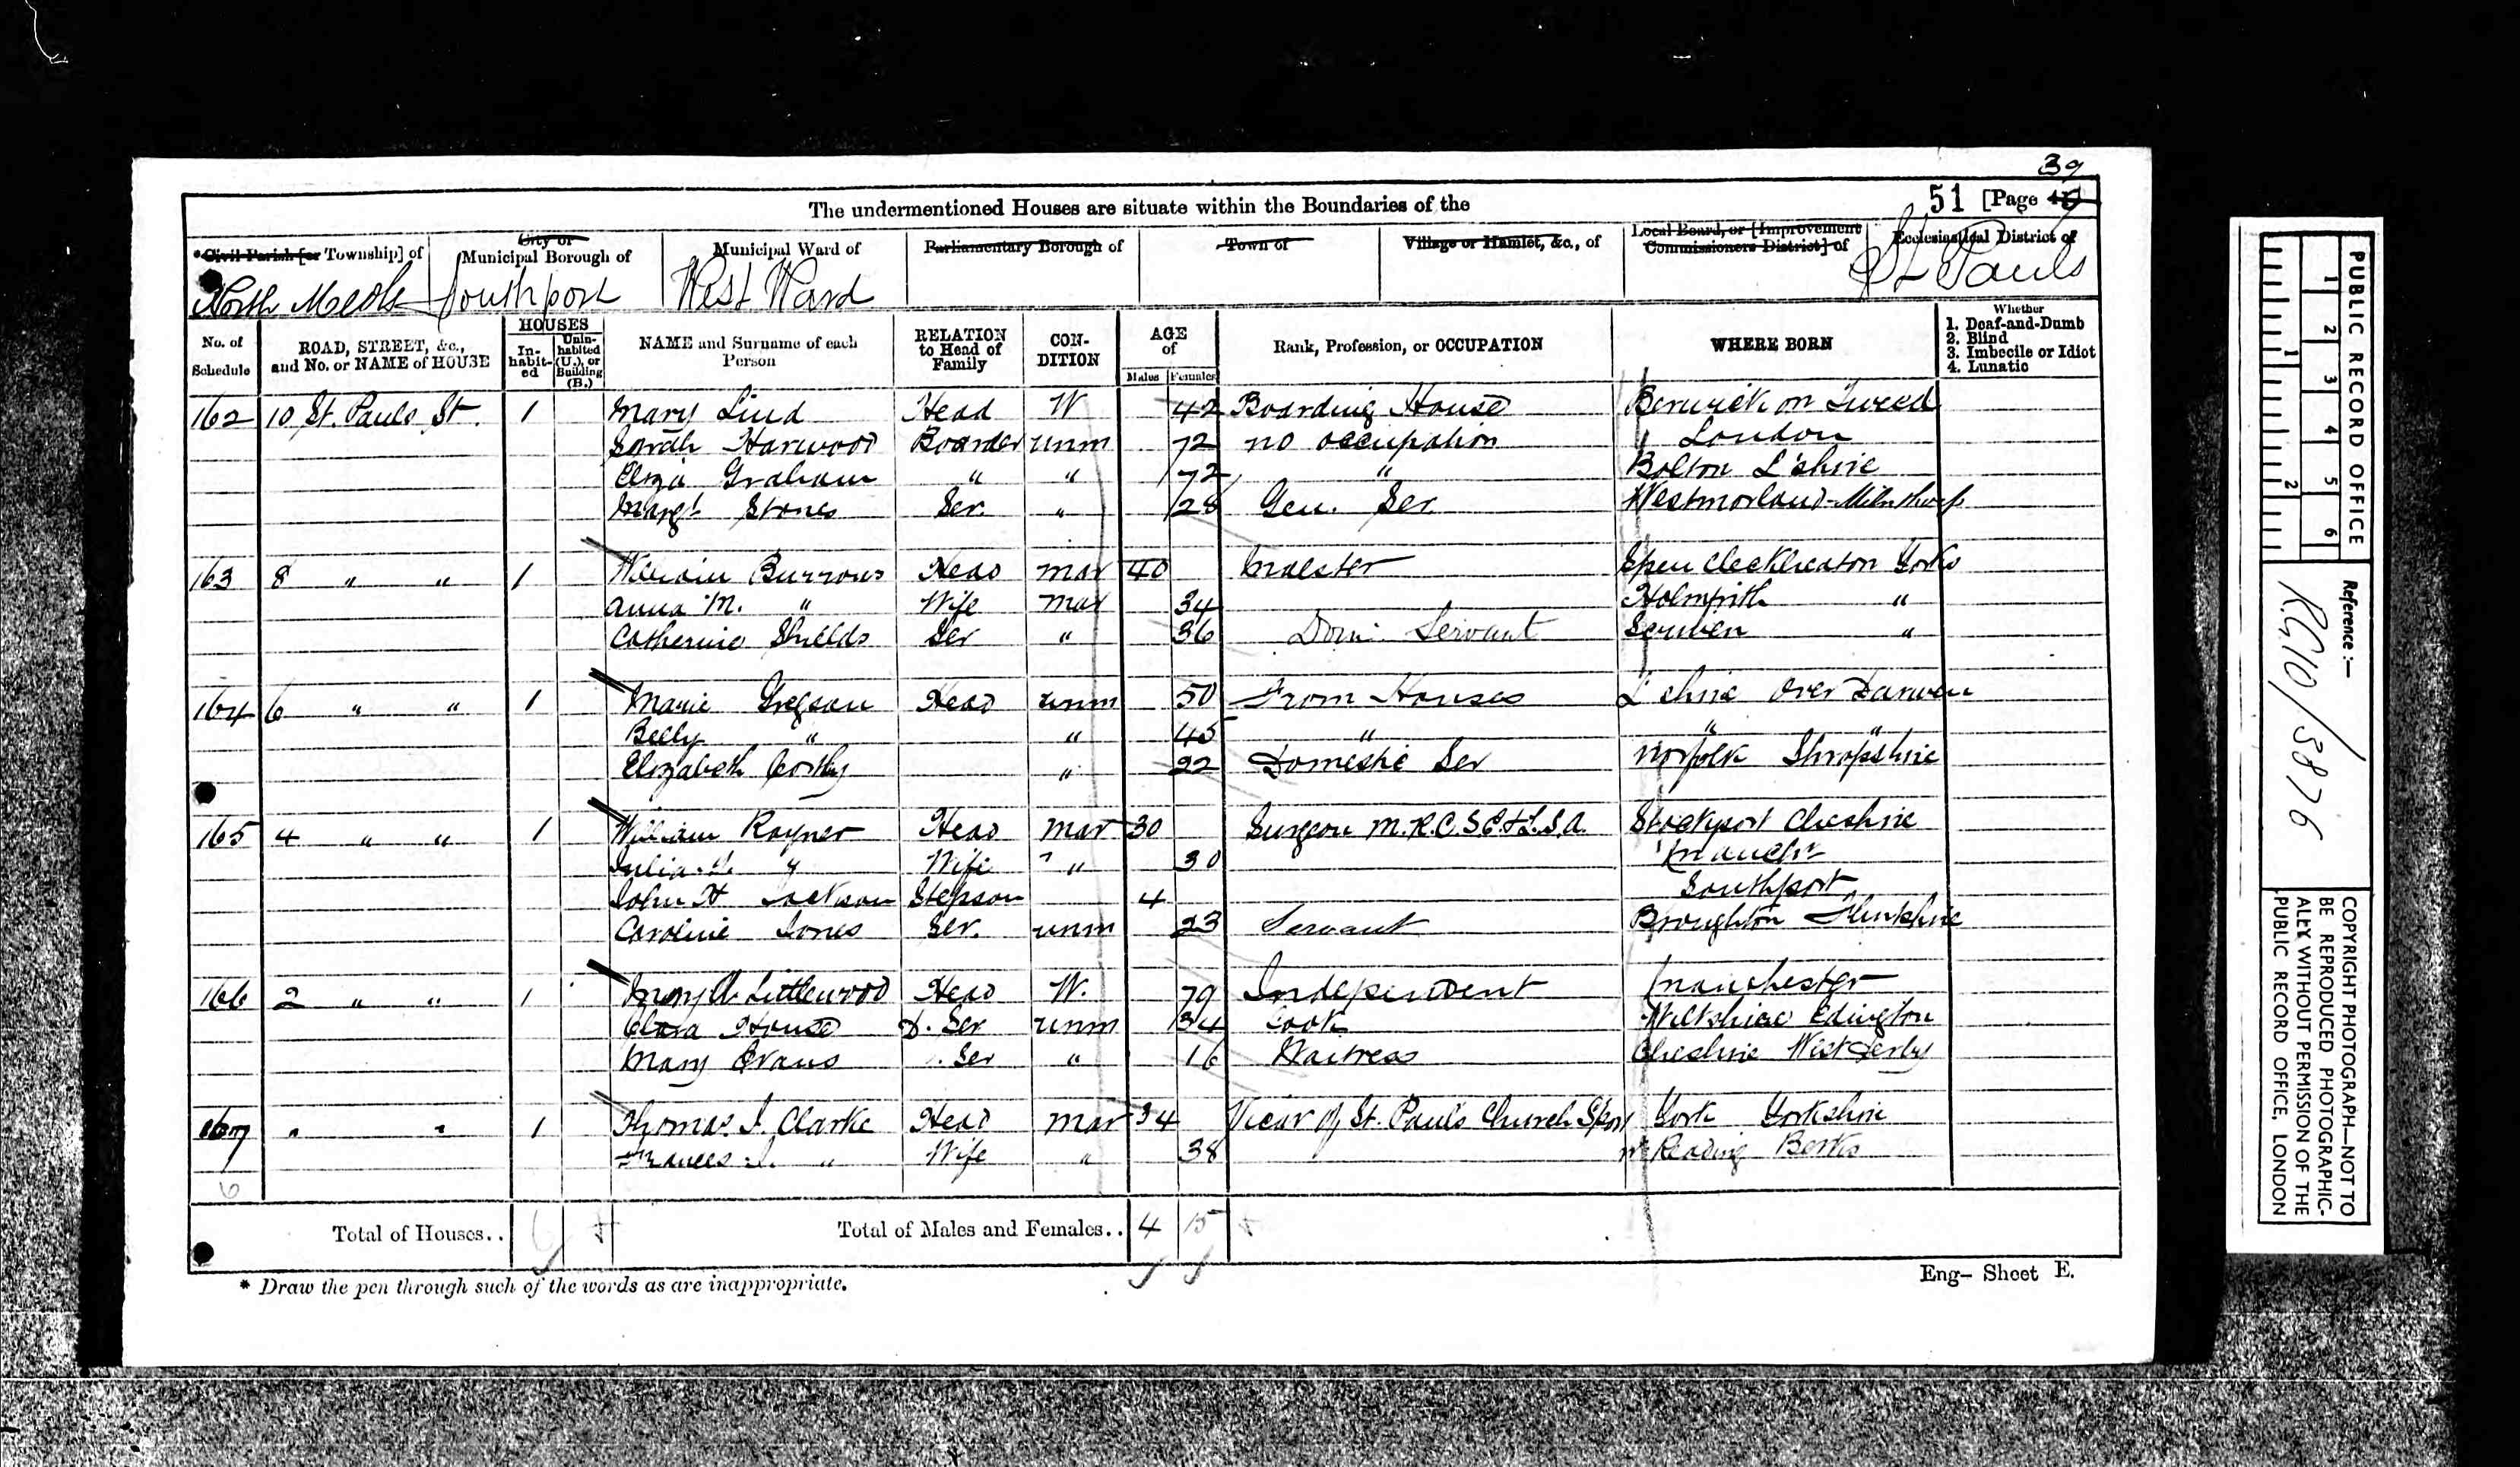 39
The undermentioned Houses are situate within the Boundaries of the 51 [Page
*Civil Parish [or Township] of
City or Municipal Borough of
Municipal Ward of
Parliamentary Borough of
Town of
Village or Hamlet, &c., of
Local Board, or [Improvement Commissioners District] of
Ecclesiastical District of
North Meols Southport West Ward St Pauls
No. of Schedule
ROAD, STREET, &c., and No. or NAME of HOUSE
HOUSES
In-habit-ed
Unin-habited (U.), or Building (B.)
NAME and Surname of each Person
RELATION to Head of Family
CON-DITION
AGE of
Males Females
Rank, Profession, or OCCUPATION
WHERE BORN
Whether
1. Deaf-and-Dumb
2. Blind
3. Imbecile or Idiot
4. Lunatic
162 10 St. Pauls St. 1 Mary Lind Head W 42 Boarding House Berwick on Tweed
Sarah Harwood Boarder unm 72 no occupation London
Eliza Graham " " 72 " Bolton L'shire
Margt Stones Ser. " 28 Gen. Ser Westmorland Milnthorp
163 8 " " 1 William Burrows Head mar 40 Spen Cleckheaton Yorks
Anna M. " Wife mar 34 Holmfirth "
Catherine Shields Ser " 36 Dom. Servant Scriven "
164 6 " " 1 Marie Gregson Head unm 50 From Houses L'shire Over Darwen
Betty " " 45 " " "
Elizabeth " 22 Domestic Ser Norfolk Shropshire
165 4 " " 1 William Rayner Head mar 30 Surgeon M.R.C.S.E & L.S.A. Stockport Cheshire
Julia " Wife " 30 Manchr
John H Jackson Stepson 4 Southport
Caroline Jones Ser. unm 23 Servant Broughton Flintshire
166 2 " " 1 Mary A. Littlewood Head W. 79 Independent Manchester
Clara House D. Ser unm 34 Cook Wiltshire Edington
Mary Evans Ser " 16 Waitress Cheshire West Derby
167 " " 1 Thomas J. Clarke Head Mar 34 Vicar of St. Paul's Church Sport York Yorkshire
Frances J. " Wife " 38 nr Reading Berks
6
Total of Houses.. 6
Total of Males and Females.. 4 15
* Draw the pen through such of the words as are inappropriate.
Eng- Sheet E.
PUBLIC RECORD OFFICE
1 2 3 4 5 6
1 2
Reference :-
RG10/3876
COPYRIGHT PHOTOGRAPH—NOT TO
BE REPRODUCED PHOTOGRAPHIC-
ALLY WITHOUT PERMISSION OF THE
PUBLIC RECORD OFFICE, LONDON